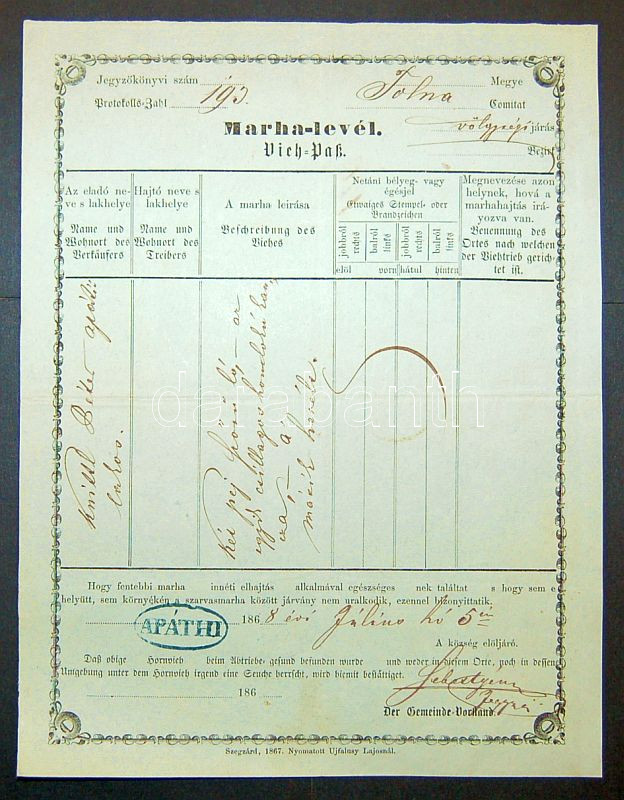 Jegyzőkönyvi szám
Protokolls-Zahl 193.
Tolna Megye
Comitat
völgységi járás
Bezirk
Marha-levél.
Vieh-Paß.
Az eladó ne-
ve s lakhelye
Name und
Wohnort des
Verkäufers
Hajtó neve s
lakhelye
Name und
Wohnort des
Treibers
A marha leirása
Beschreibung des
Viehes
Netáni bélyeg- vagy
égésjel
Etwaiges Stempel- oder
Brandzeichen
jobbról
rechts
balról
links
jobbról
rechts
balról
links
elöl vorn hátul hinten
Megnevezése azon
helynek, hová a
marhahajtás irá-
yozva van.
Benennung des
Ortes nach welchen
der Viehtrieb gerich-
tet ist.
Knittl Péter apáti
lakos.
Két pej szőrű ló — az
egyik csillagos homlokú
a
másik
Hogy fentebbi marha innéti elhajtás alkalmával egészséges nek találtat s hogy sem e
helyütt, sem környékén a szarvasmarha között járvány nem uralkodik, ezennel bizonyittatik.
APÁTHI
1868 évi Július hó 5én
A község elöljáró.
Daß obige Hornvieh beim Abtriebe gesund befunden wurde und weder in diesem Orte, noch in dessen
Umgebung unter dem Hornvieh irgend eine Seuche herrscht, wird hiemit bestätiget.
186
Der Gemeinde-Vorstand.
Szegzárd, 1867. Nyomatott Ujfalusy Lajosnál.
darabanth